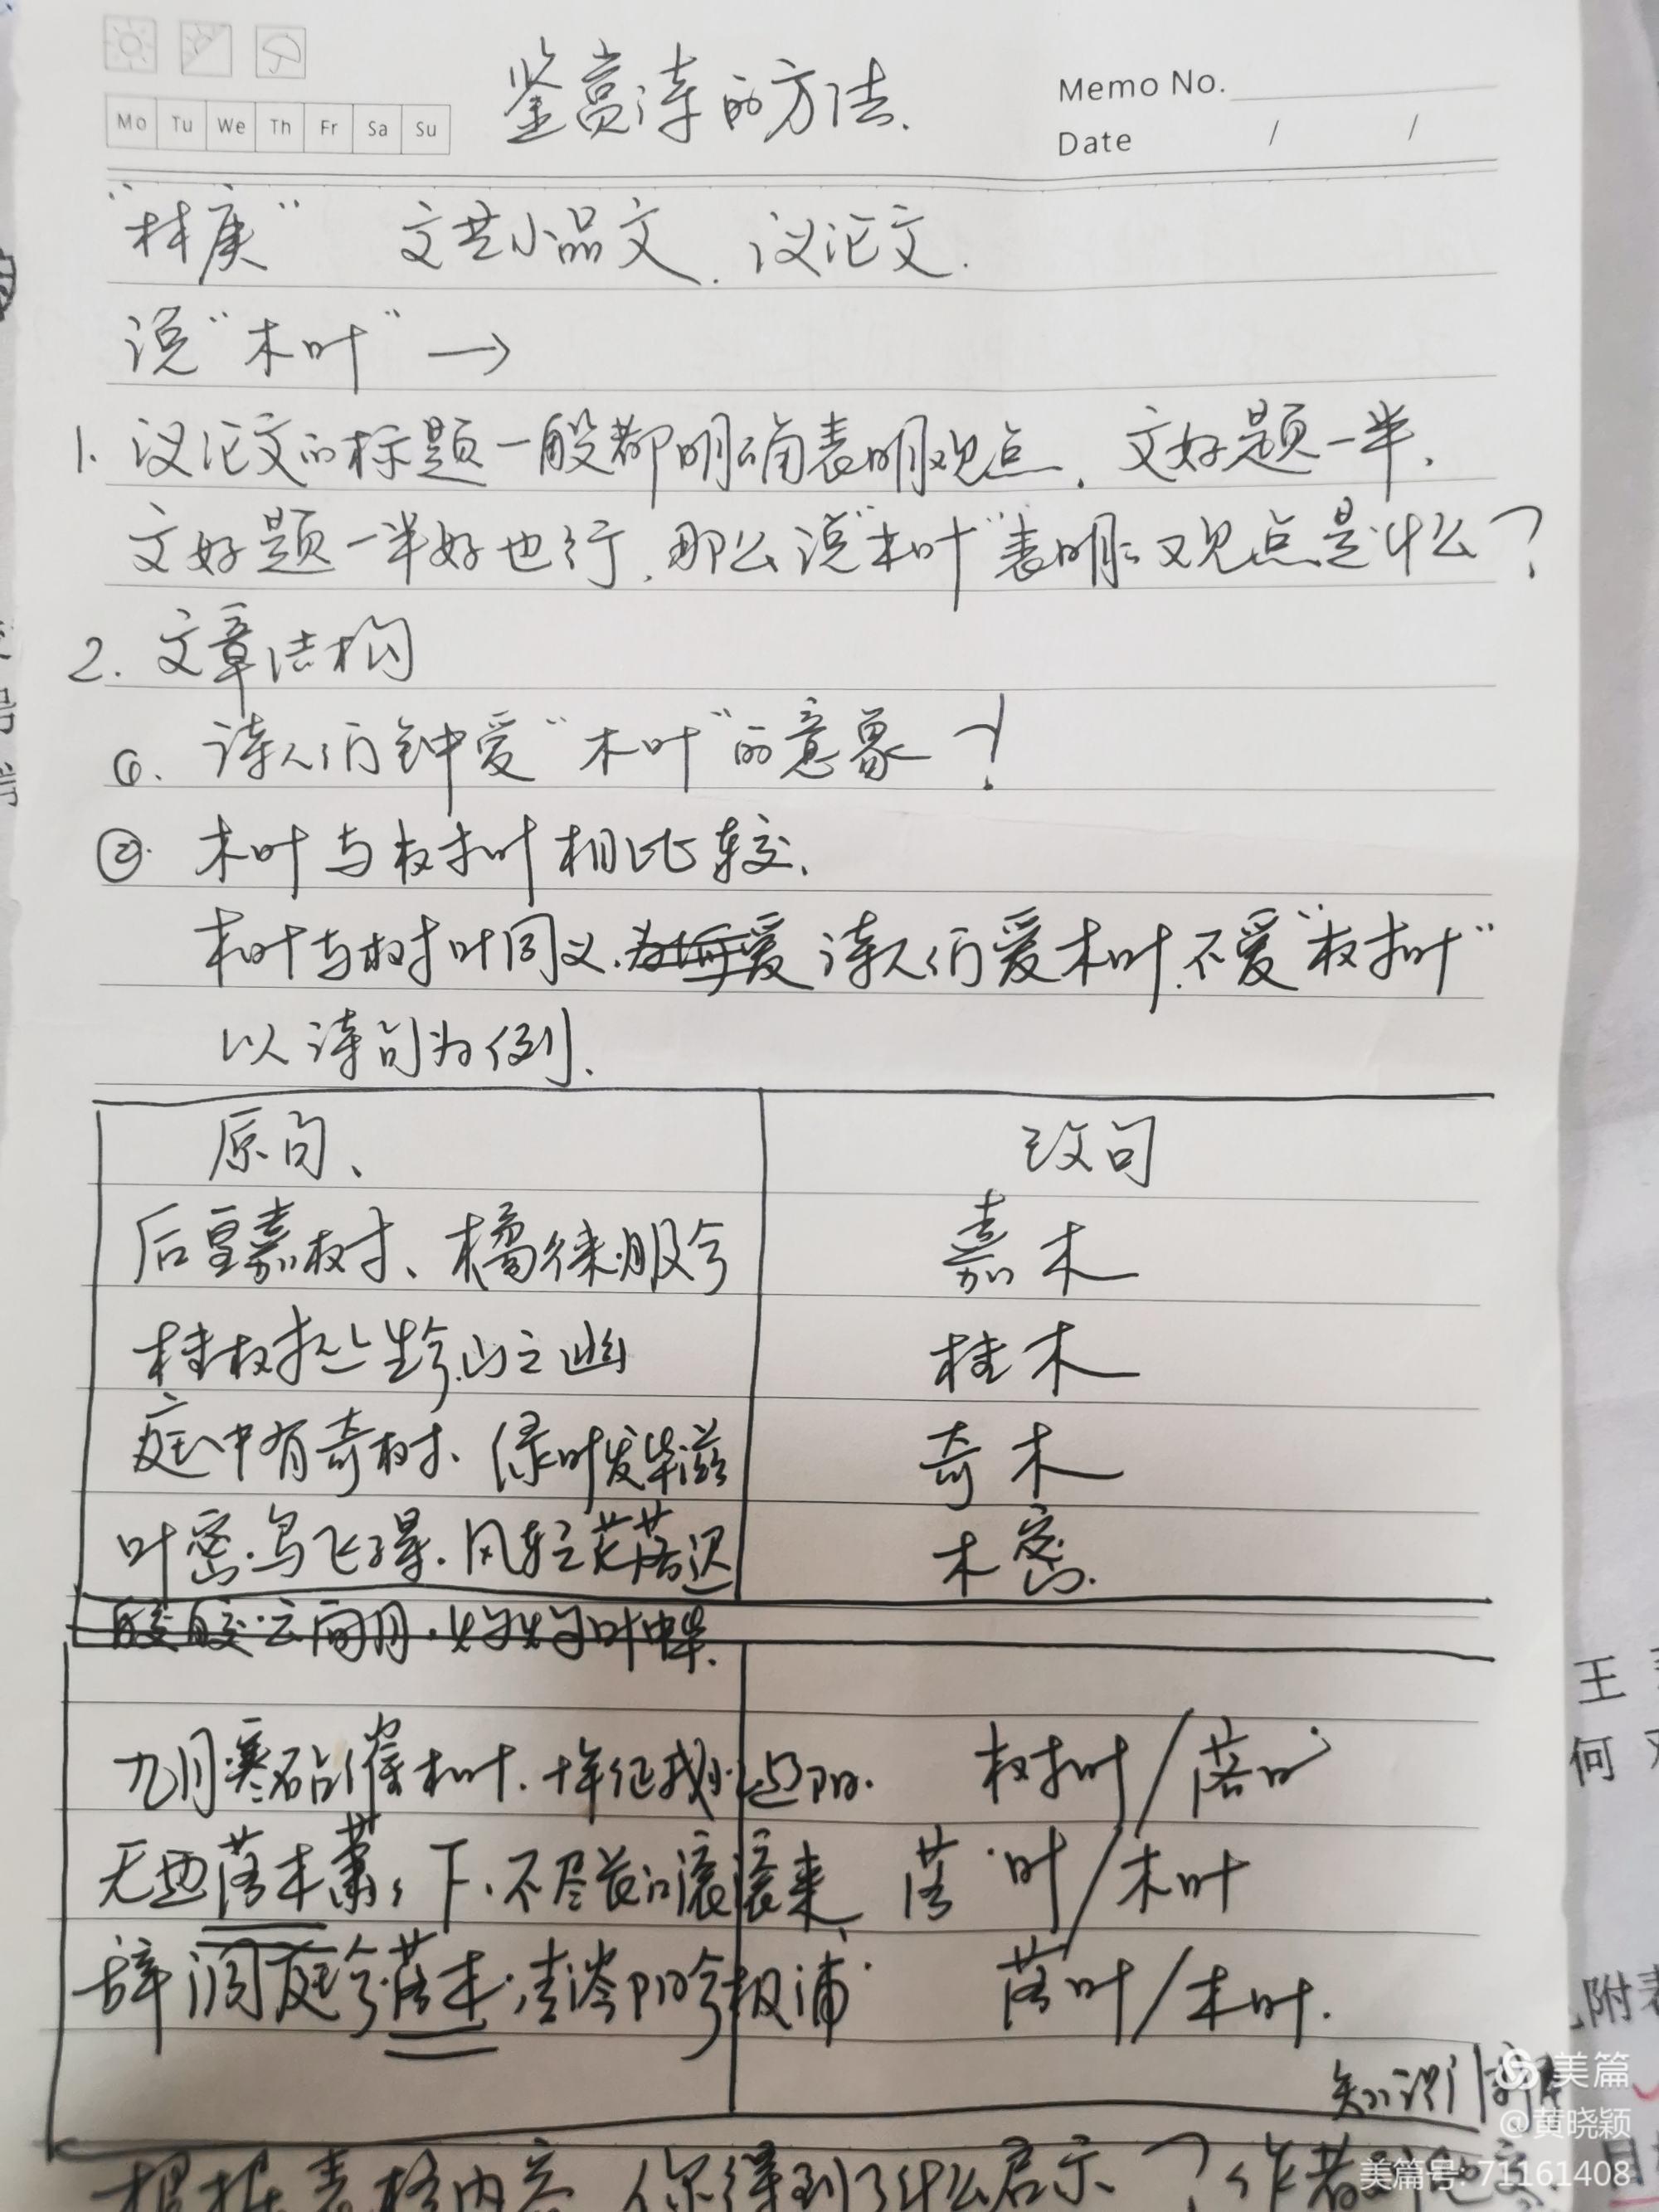 鉴赏诗的方法.
Memo No.
Mo Tu We Th Fr Sa Su
Date / /
“材质” 文艺小品文. 议论文.
说“木叶” →
1. 议论文的标题一般都明确表明观点. 文好题一半.
文好题一半好也行. 那么说“木叶”表明观点是什么?
2. 文章结构
①. 诗人们钟爱“木叶”的意象?
②. 木叶与树叶相比较.
木叶与树叶同义. 诗人们爱木叶. 不爱“树叶”
以诗句为例.
原句、 改句
后皇嘉树、橘徕服兮 嘉木
桂树丛生兮.山之幽 桂木
庭中有奇树、绿叶发华滋 奇木
叶密.鸟飞得.风轻花落迟 木密.
皎皎云间月.灼灼叶中华.
九月寒砧催木叶.十年征戍 辽阳. 树叶/落叶
无边落木萧々下、不尽长江滚滚来、 落叶/木叶
辞洞庭兮落木.去涔阳兮极浦 落叶/木叶.
知识
根据表格内容 你得到了什么启示? 作者
王
何
附表
美篇
@黄晓颖
美篇号: 71161408